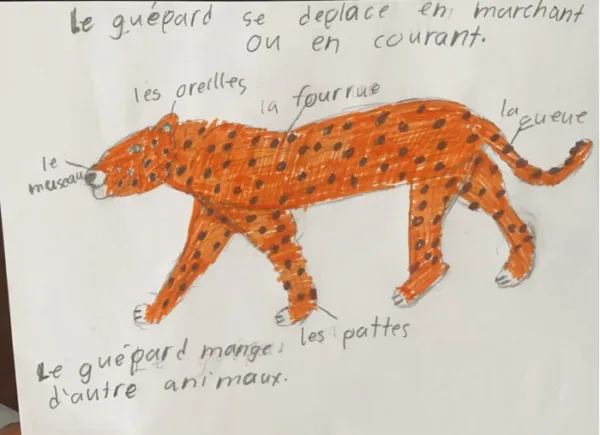 Le guépard se deplace en marchant
ou en courant.
les oreilles
la fourrue
la queue
le
museau
les pattes
Le guépard mange
d'autre animaux.